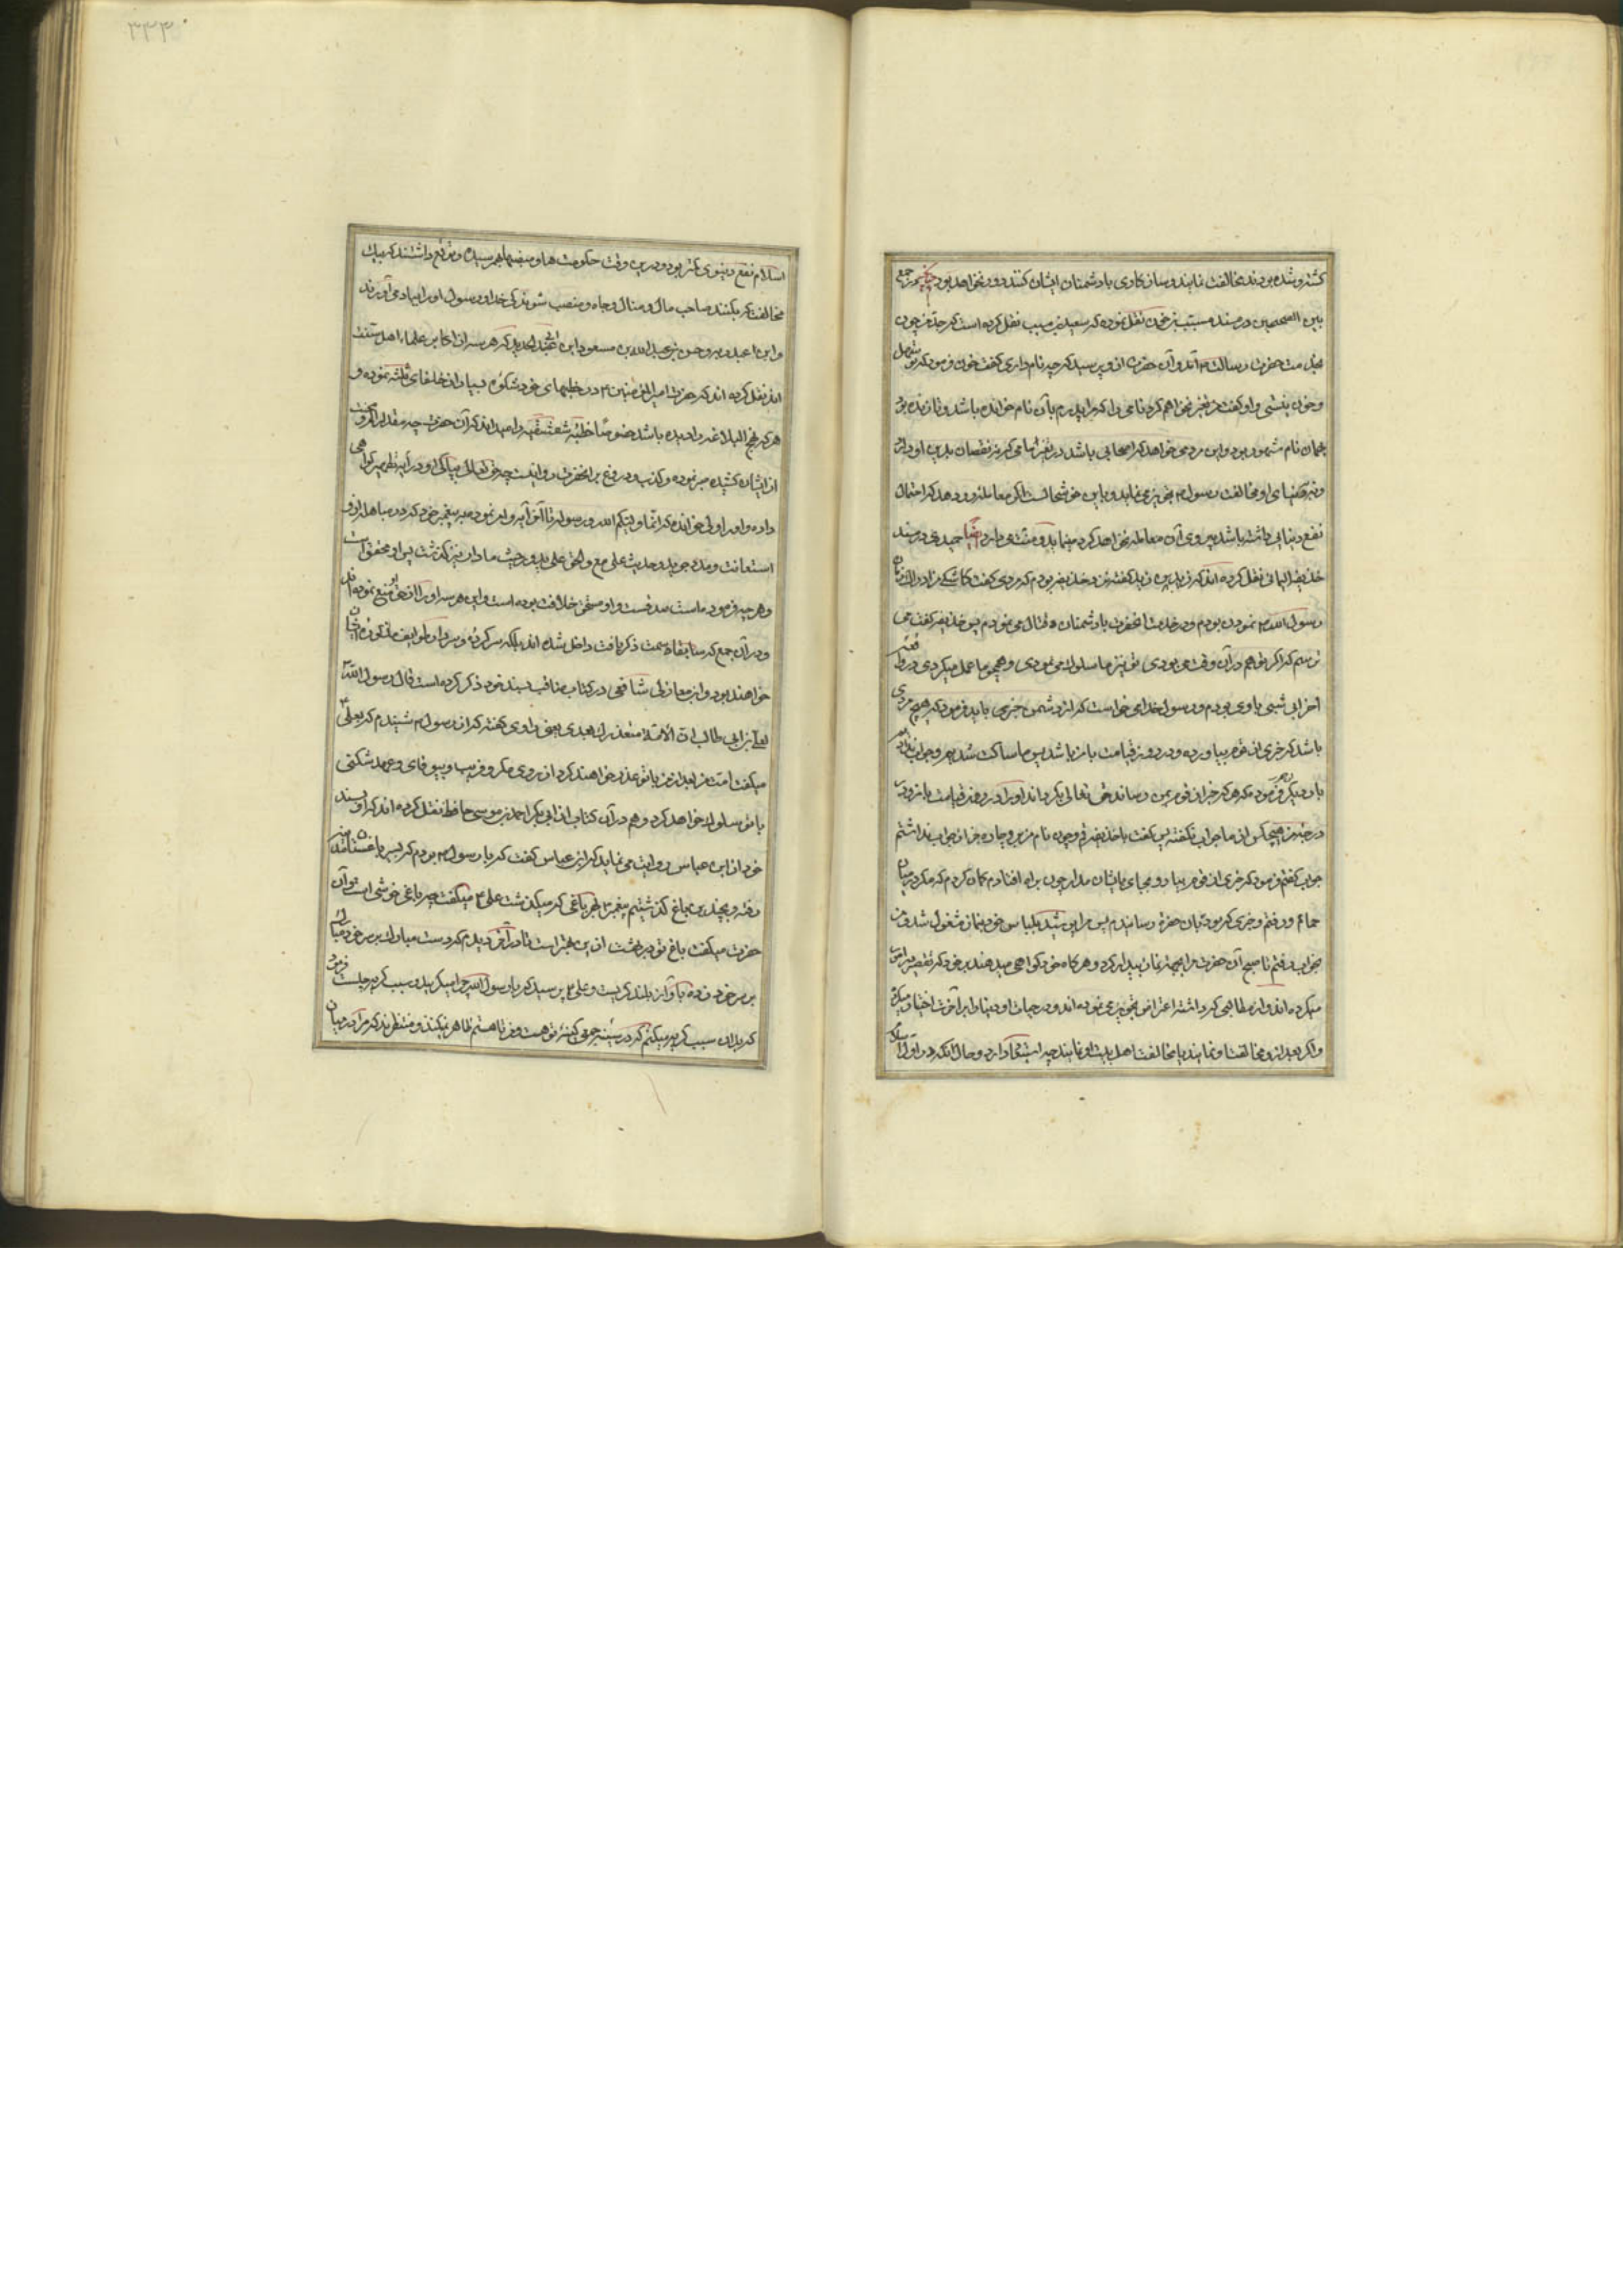 کشته و شده بودند مخالفت نمایند و سازکاری با دشمنان ایشان کنند دور نخواهد بود چنانچه در جمع
بین الصحیحین در مسند مسیب بن حزن نقل نموده که سعید بن مسیب نقل کرده است که جد من چون
بخدمت حضرت رسالت آمد و آن حضرت از او پرسید که چه نام داری گفت حزن فرمود که تو سهل
و حزن نیستی و او گفت من تغییر نخواهم کرد نامی را که مرا پدرم بآن نام خوانده باشد و تا زنده بود
بهمان نام مشهور بود و این مردمی خواهد که اصحابی باشد در تغییر نامی که نه نقصان بدین او دارد
و نه بدنیای او مخالفت رسول تجویز می نماید و باین خوشحالست اگر معامله رو دهد که احتمال
نفع دنیایی داشته باشد پیروی آن معامله نخواهد کرد مینماید و منت می دارد ایضا حمیدی در مسند
حذیفة الیمانی نقل کرده اند که زید بن زید گفته من و حذیفه بودیم که مردی گفت کاشکی من ادراک زمان
رسول الله نموده بودم و در خدمت آنحضرت با دشمنان قتال می نمودم پس حذیفه گفت می
ترسم که اگر تو هم در آن وقت می بودی تو نیز ما سلوک می نمودی و همچو ما عمل میکردی در وقعه
احزاب شبی با وی بودم و رسول خدا می خواست که از دشمن خبری یابد فرمود که هیچ مردی
باشد که خبری از قوم بیاورد و در روز قیامت با من باشد پس ما ساکت شدیم و جواب ندادیم
بار دیگر فرمود که هر که خبر از قوم بمن رساند حق تعالی بگرداند او را در روز قیامت با من و در
درجه من هیچکس از ما جواب نگفت پس گفت یا حذیفه قم و چون نام من برد چاره جز از جواب نداشتم
جواب گفتم فرمود که خبری از قوم بیار و بجای بایشان مدار چون براه افتادم گمان کردم که مگر در میان
حمام و رفتم و خبری که بود بان حضرت رسانیدم پس مرا پوشید بلباس خود و بنماز مشغول شد و من
بخواب رفتم تا صبح آن حضرت مرا بجهة نماز بیدار کرد و هر گاه خود گواهی میدهند بر خود که تقصیر در امر
میکرده اند و از مطالبی که داشته اعتراض تجویز می نموده اند و در حیات او دنیا را بر آخرت اختیار میکرده
و اگر بعد از و مخالفت او نمایند یا مخالفت اهل بیت او نمایند چه استبعاد دارد و حال آنکه در اول اسلام
اسلام نفع دنیوی کمتر بود و درین وقت حکومت ها و منصبها بهم رسیده و توقع داشتند که بیک
مخالفت که بکنند صاحب مال و منال و جاه و منصب شوند کی خدا و رسول او را بیاد می آورند
و ابن عبد ربه و حسن بن عبدالله بن مسعود ابن ابی الحدید که هر سه از اکابر علماء اهل سنت
اند نقل کرده اند که حضرت امیر المؤمنین در خطبهای خود شکوه بسیار از خلفای ثلثه نموده و
هر که نهج البلاغه را دیده باشد خصوصا خطبه شقشقیه را میداند که آن حضرت چه مقدار آزار و محنت
از ایشان کشیده صبر نموده و کذب و دروغ بر آنحضرت روا نیست چه حق تعالی بپاکی او در آیه تطهیر گواهی
داده و او را ولی خوانده که انما ولیکم الله و رسوله تا آخر آیه و امر نموده پیغمبر خود که در مباهله از و
استعانت و مدد جوید و حدیث علی مع الحق و الحق علی بدور حیث ما دار نیز گذشت پس او محقق است
و هر چه فرموده است صدقست و او مستحق خلافت بوده است و این هر سه او را از حق او منع نموده اند
و در آن جمع که سابقا سمت ذکر یافت داخل شده اند بلکه سرکرده و سردار طوایف مذکوره ایشان
خواهند بود و ابن مغازلی شافعی در کتاب مناقب بسند خود ذکر کرده است قال رسول الله
لعلی بن ابی طالب ان الامة ستغدر بک بعدی یعنی راوی گفته که از رسول شنیدم که بعلی
میگفت امت من بعد از من با تو غدر خواهند کرد از روی مکر و فریب و بیوفای و عهد شکنی
با تو سلوک خواهد کرد و هم در آن کتاب از ابی بکر احمد بن موسی حافظ نقل کرده اند که او بسند
خود از ابن عباس روایت می نماید که ابن عباس گفت که با رسول بودم که بسیر باغستانهای مدینه
رفته و بچندین باغ گذشتیم پیغمبر بهر باغی که میگذشت علی میگفت چه باغی خوشی است و آن
حضرت میگفت باغ تو در بهشت از این بهتر است تا در آخر دیدم که دست مبارک بر سر خود میبارک
بر سر خود زده بآواز بلند گریست و علی پرسید که یا رسول الله چرا میگریی و سبب گریه چیست فرمود
که بدان سبب گریه میکنم که در سینه جمعی کینه تو هست و من تا هستم ظاهر نمیکنند و منتظرند که مرا در میان
۳۳۳